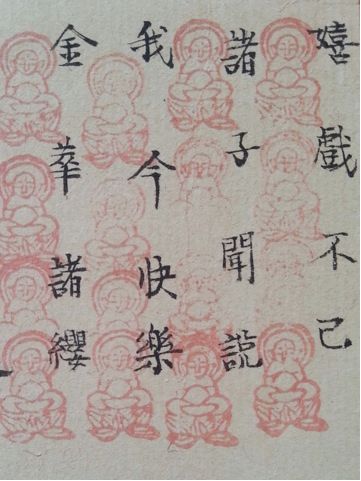 嬉戲不已
諸子聞說
我今快樂
金華諸纓